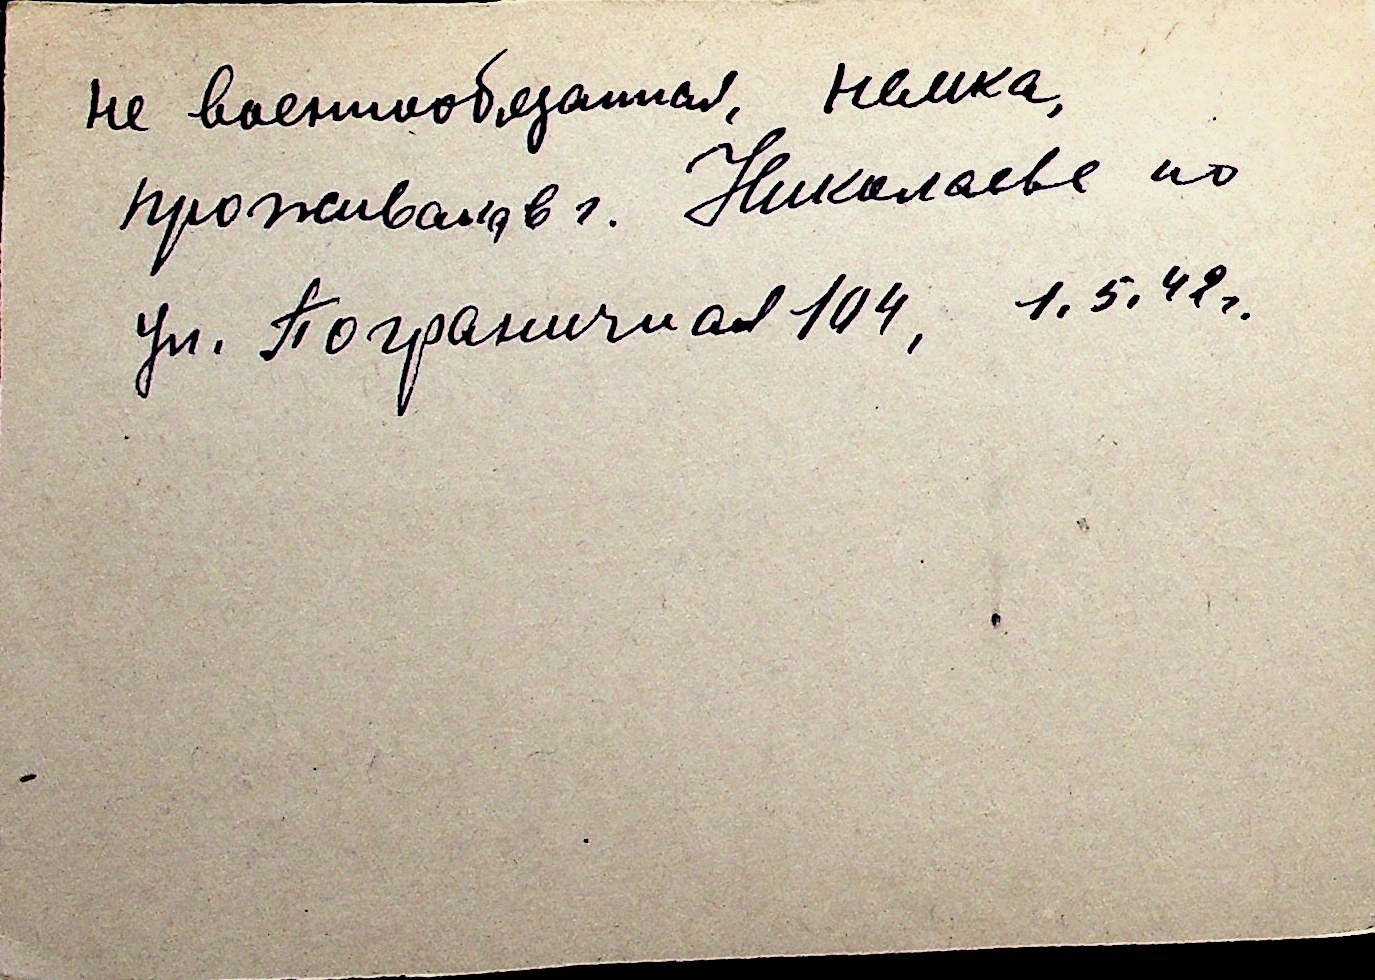 не военнообязанная, немка,
проживала в г. Николаеве по
ул. Пограничная 104, 1.5.42г.